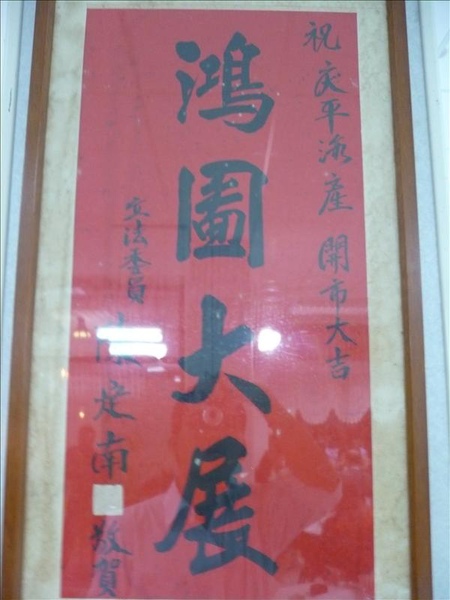 祝慶平海產 開市大吉
鴻圖大展
立法委員 陳定南 敬賀